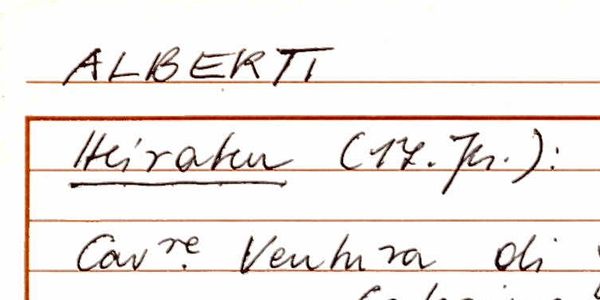 ALBERTI
Heiraten (17. Jh.):
Cav.re Ventura di